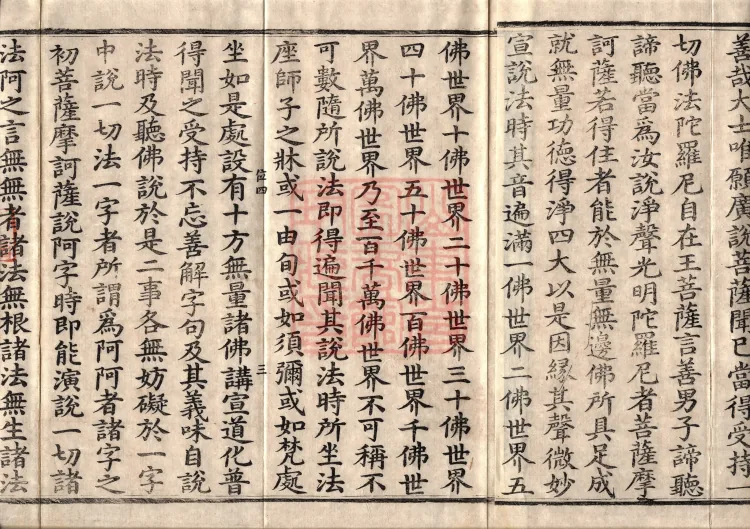 善哉大士唯願廣說菩薩聞已當得受持一
切佛法陀羅尼自在王菩薩言善男子諦聽
諦聽當為汝說淨聲光明陀羅尼者菩薩摩
訶薩若得住者能於無量無邊佛所具足成
就無量功德得淨四大以是因緣其聲微妙
宣說法時其音遍滿一佛世界二佛世界五
佛世界十佛世界二十佛世界三十佛世界
四十佛世界五十佛世界百佛世界千佛世
界萬佛世界乃至百千萬佛世界不可稱不
可數隨所說法即得遍聞其說法時所坐法
座師子之牀或一由旬或如須彌或如梵處
位四 三
坐如是處設有十方無量諸佛講宣道化普
得聞之受持不忘善解字句及其義味自說
法時及聽佛說於是二事各無妨礙於一字
中說一切法一字者所謂為阿阿者諸字之
初菩薩摩訶薩說阿字時即能演說一切諸
法阿之言無無者諸法無根諸法無生諸法